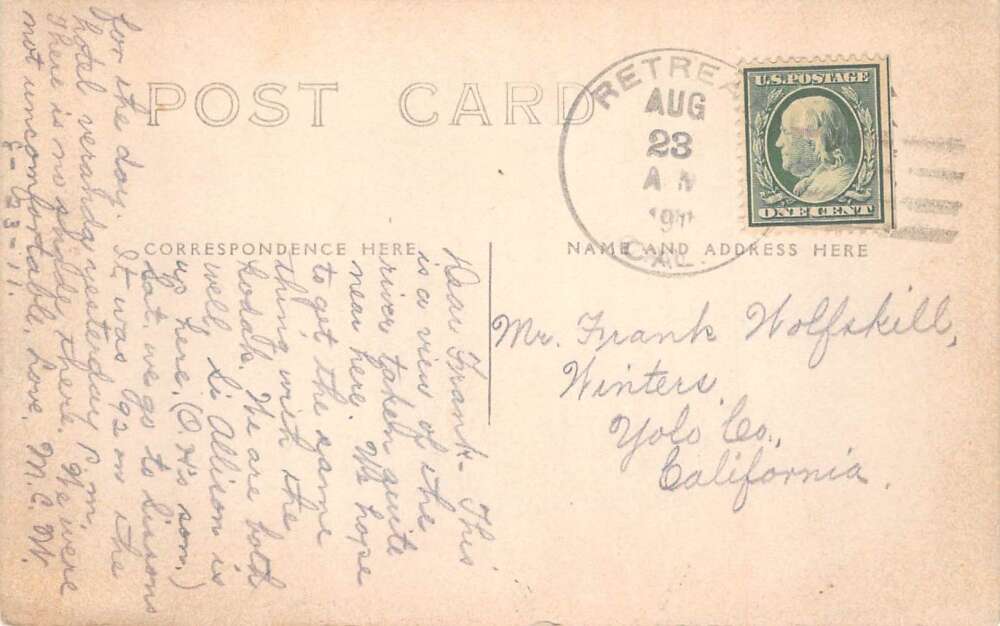 POST CARD
RETREA
AUG
23
A M
1911
CAL.
U.S. POSTAGE
ONE CENT
CORRESPONDENCE HERE
NAME AND ADDRESS HERE
Dear Frank- This
is a view of the
river taken quite
near here. We hope
to get the same
thing with the
Kodak. We are both
well. Si Allison is
up here. (O H's son.)
Sat. we go to Sissons
for the day. It was 92 on the
hotel verandy yesterday P.m.
There is no shade there. We were
not uncomfortable. Love. M.C.W.
8-23-11.
Mr. Frank Wolfskill,
Winters,
Yolo Co.,
California.